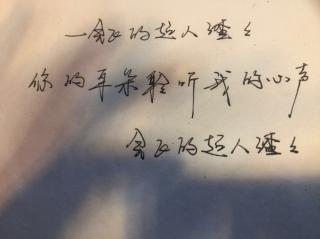 一会飞的超人
你的耳朵聆听我的心声
会飞的超人